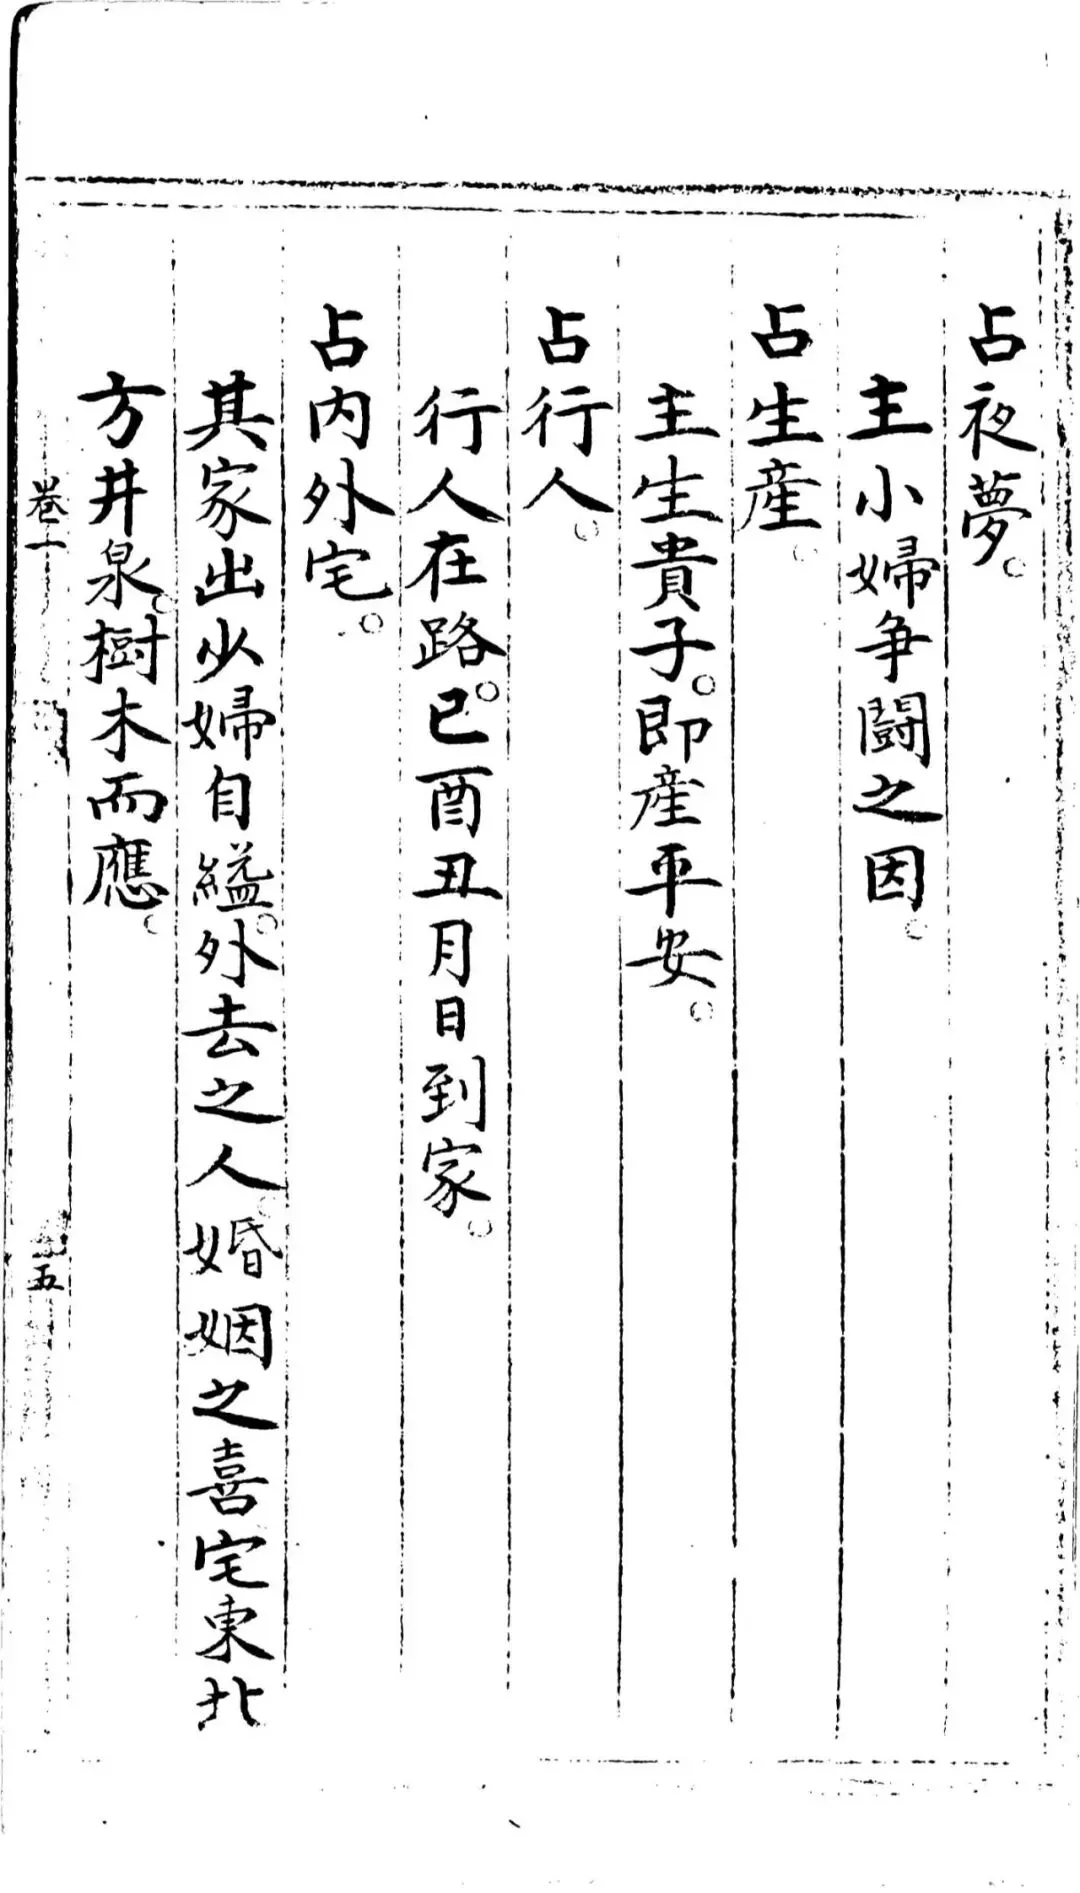 占夜夢。
主小婦争鬪之因。
占生産。
主生貴子。即産平安。
占行人。
行人在路。已酉丑月日到家。
占内外宅。
其家出少婦自縊。外去之人。婚姻之喜宅東北
方井泉。樹木而應。
卷一
五